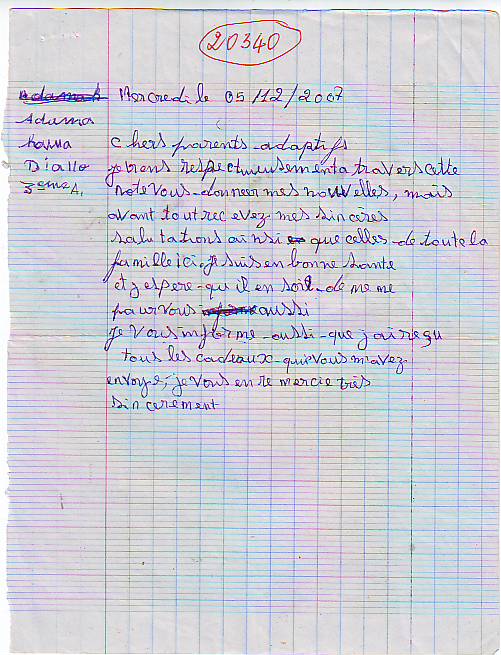 20340
Mercredi le 05/12/2007
Adama
Hawa
Diallo
3eme A.
chers parents adaptifs
je viens respectueusement a travers cette
note vous donneer mes nouvelles, mais
avant tout recevez mes sincères
salutations ainsi que celles de toute la
famille ici. je suis en bonne sante
et j espere qu il en soit de meme
pour vous aussi
je vous informe aussi que j ai reçu
tous les cadeaux qui vous m'avez
envoyé, je vous en remercie très
sincerement